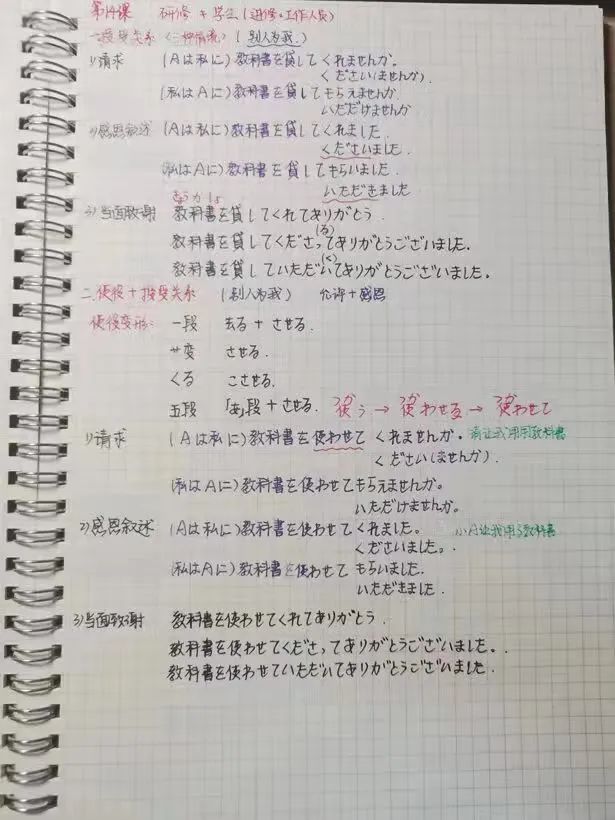 第14课 研修 + 学生(进修・工作人员)
一.授受关系(三种情况)(别人为我)
1)请求 (Aは私に)教科書を貸してくれませんか。
ください(ませんか)
(私はAに)教科書を貸してもらえませんか
いただけませんか
2)感恩叙述 (Aは私に)教科書を貸してくれました
くださいました.
(私はAに)教科書を貸してもらいました.
いただきました
3)当面致谢 教科書を貸してくれてありがとう.
(る)
教科書を貸してくださってありがとうございました.
(く)
教科書を貸していただいてありがとうございました.
二.使役+授受关系 (别人为我) 允许+感恩
使役变形: 一段 去る + させる.
サ变 させる.
くる こさせる.
五段 「あ」段 + させる. 使う → 使わせる → 使わせて
つか つか つか
1)请求 (Aは私に)教科書を使わせてくれませんか. 请让我用用教科書
ください(ませんか).
(私はAに)教科書を使わせてもらえませんか。
いただけませんか。
2)感恩叙述 (Aは私に)教科書を使わせてくれました。 小A让我用了教科書
くださいました。
(私はAに)教科書を使わせてもらいました.
いただきました.
3)当面致谢 教科書を使わせてくれてありがとう.
教科書を使わせてくださってありがとうございました。
教科書を使わせていただいてありがとうございました.